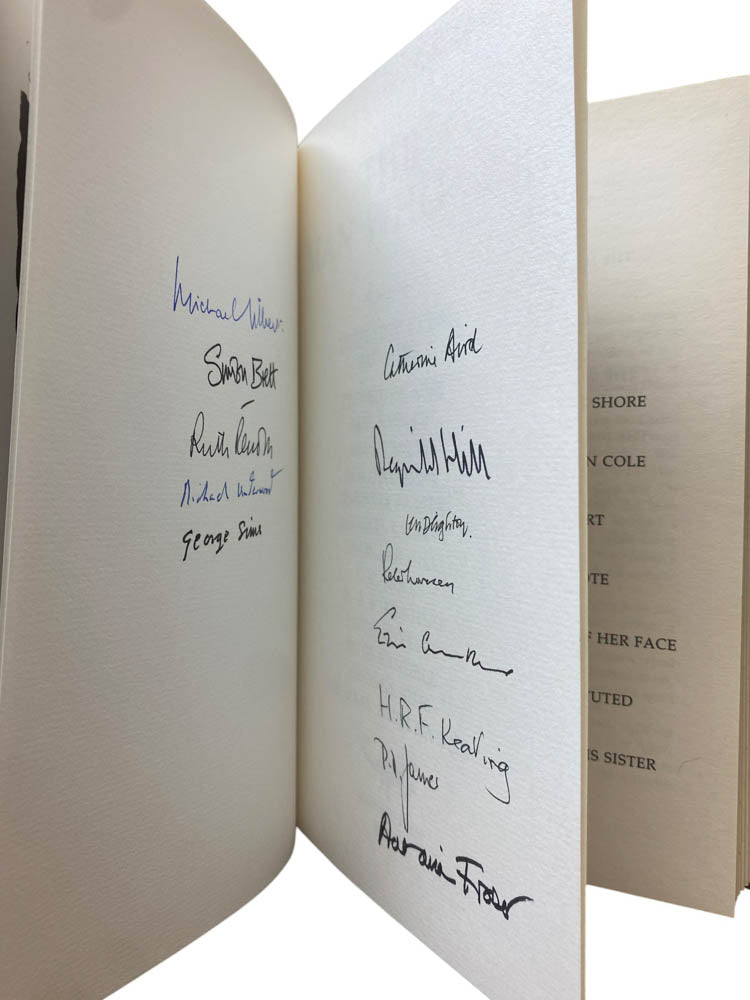 Michael Gilbert.
Simon Brett
Ruth Rendell
Michael Underwood
George Sims
Catherine Aird
Reginald Hill
Len Deighton.
Peter Lovesey
Eric Ambler
H.R.F. Keating
P.D. James
Antonia Fraser
SHORE
N COLE
RT
OTE
F HER FACE
TUTED
IS SISTER